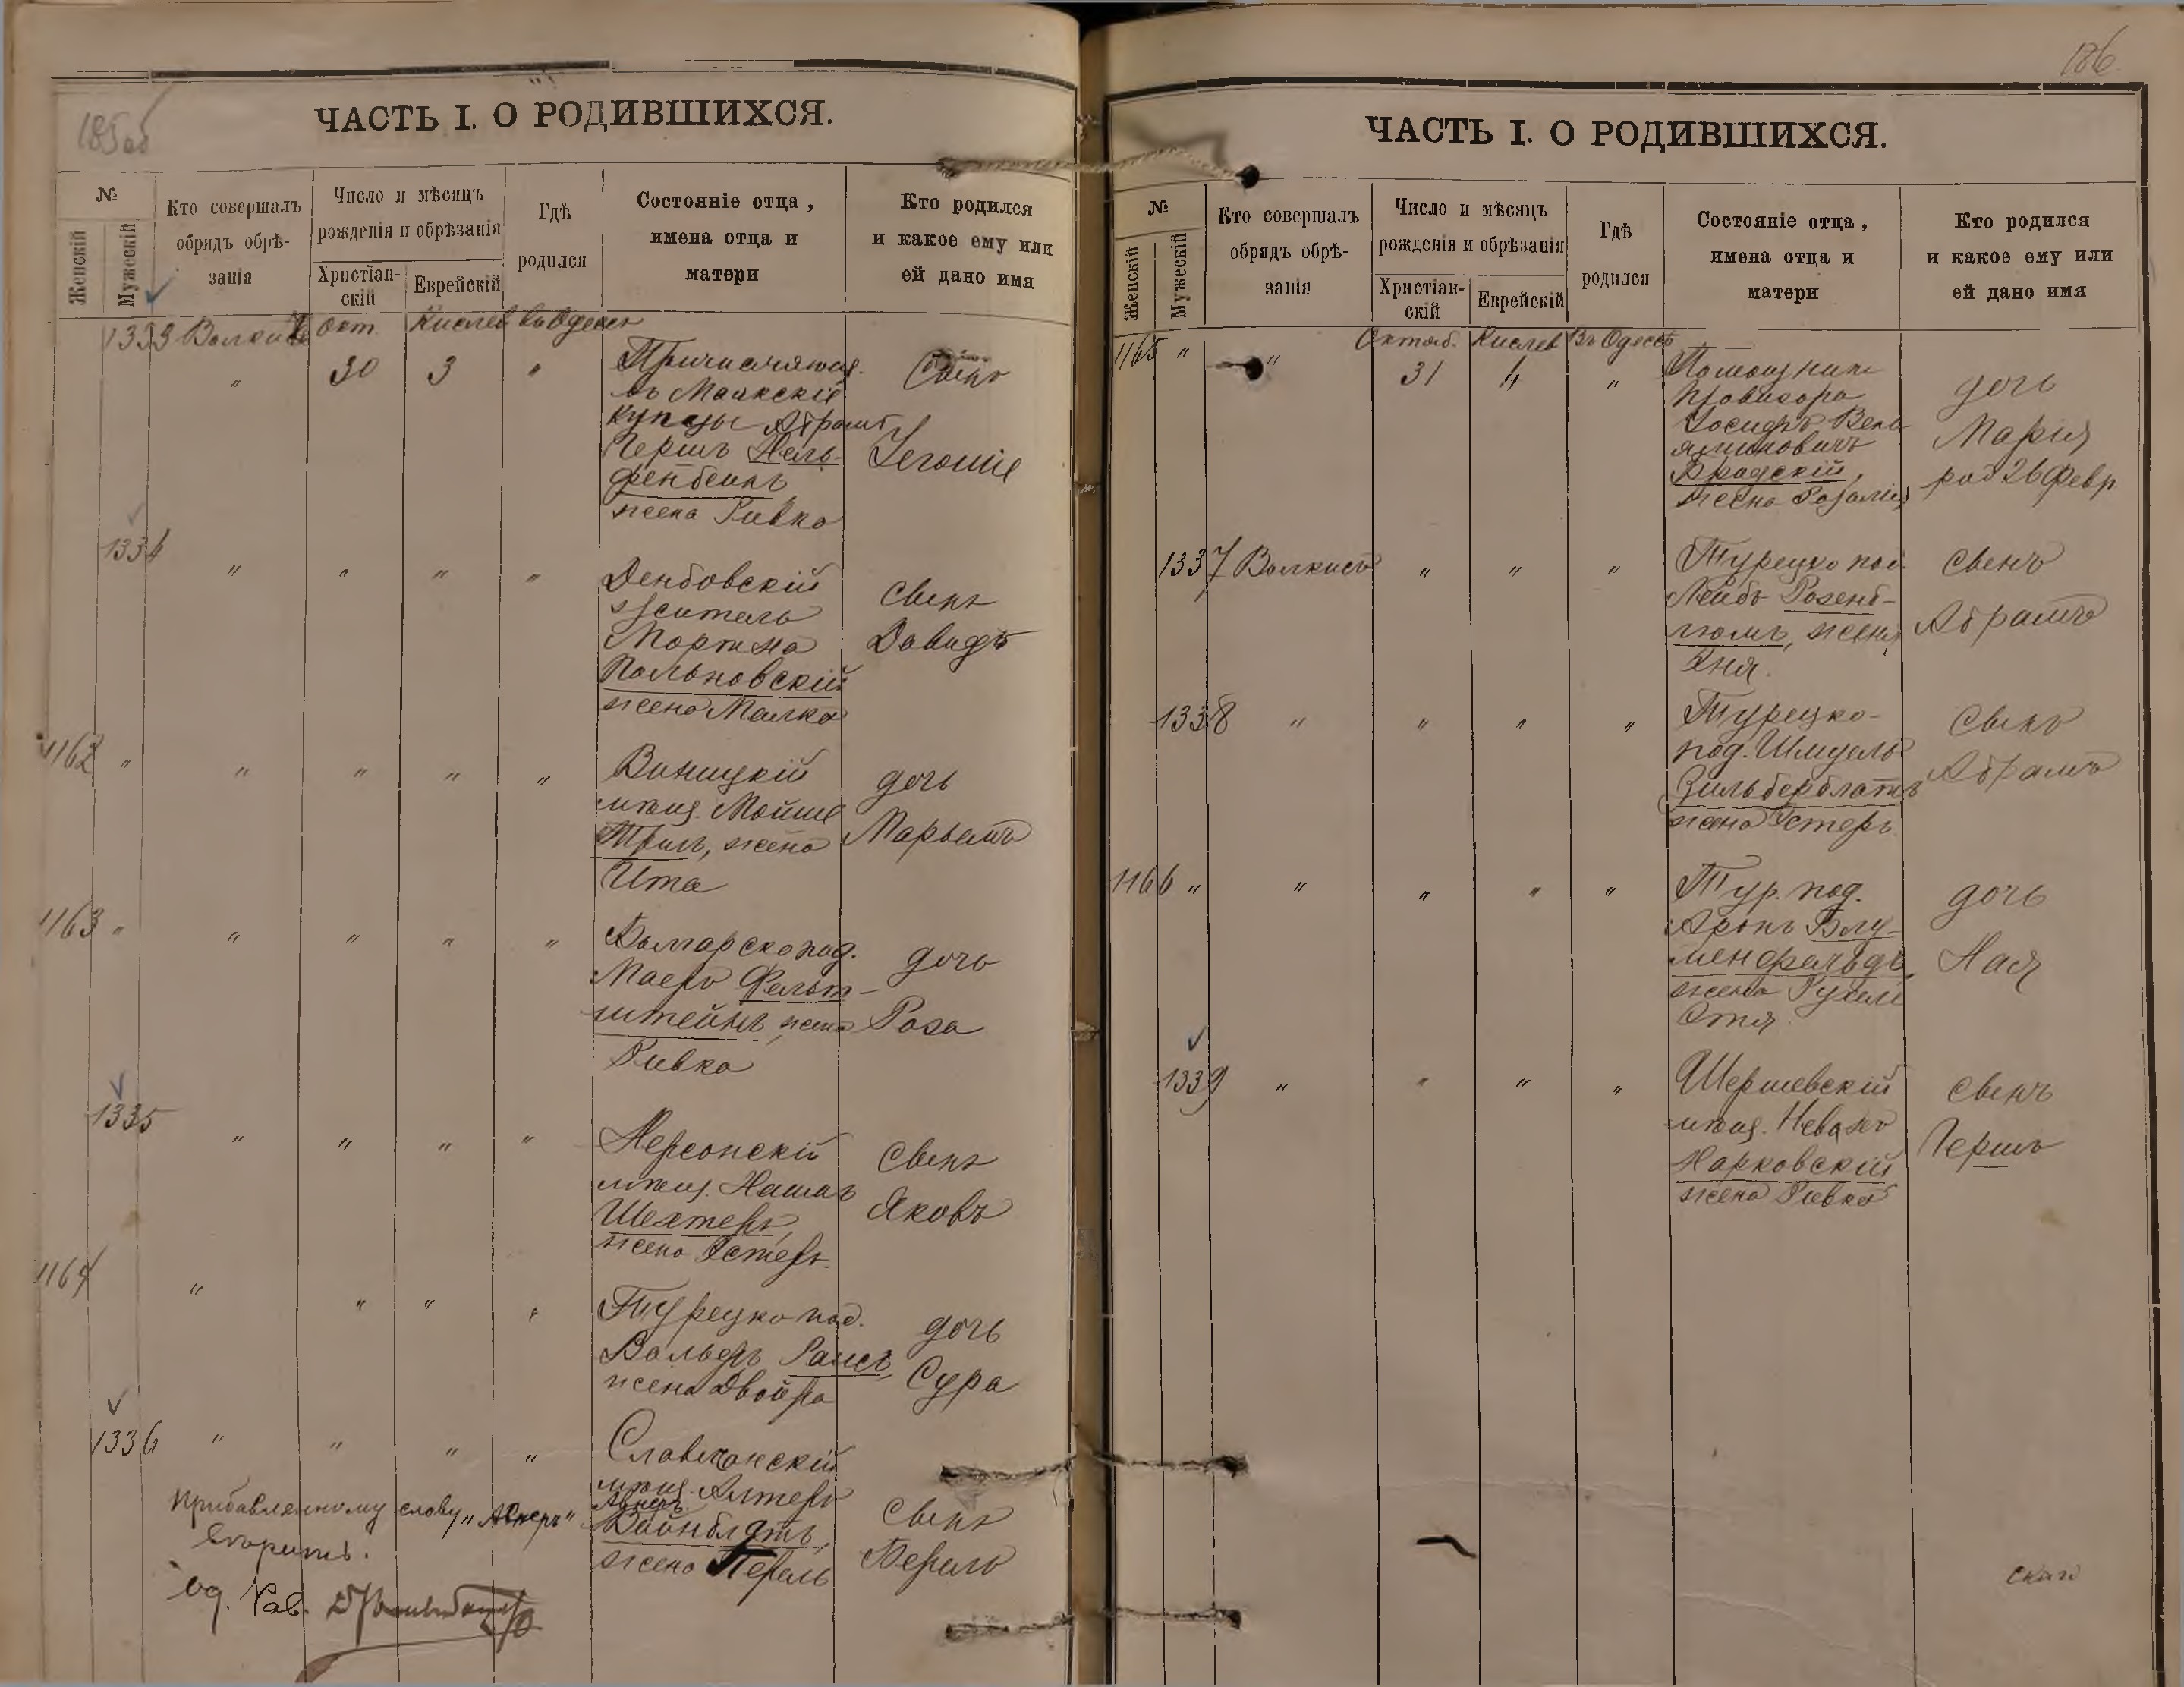 185об
ЧАСТЬ I. О РОДИВШИХСЯ.
№
Женскій
Мужескій
Кто совершалъ
обрядъ обрѣ-
занія
Число и мѣсяцъ
рожденія и обрѣзанія
Христіан-
скій
Еврейскій
Гдѣ
родился
Состояніе отца,
имена отца и
матери
Кто родился
и какое ему или
ей дано имя
1333 Волкисъ Окт. Кислев въ Одессѣ
" 30 3 "
въ Маякскіе
купцы Абрамъ
Гершъ Гель-
фенбейнъ
жена Ривка
Сынъ
1334 " " " " "
житель
жена Малка
Сынъ
Давидъ
1162 " " " " "
Виницкій
мѣщ. Мойше
Триль, жена
Ита
дочь
Марьемъ
1163 " " " " "
Болгарско под.
Маеръ Фельт-
штейнъ, жена
Ривка
дочь
Роза
1335 " " " "
Херсонскій
мѣщ.
Шехтеръ,
жена Эстеръ
Сынъ
Яковъ
1164 " " " "
Турецко под.
Вольфъ
жена Двойра
дочь
Сура
1336 " " " "
мѣщ. Алтеръ
Авнеръ
Вайнблатъ,
жена Перель
Сынъ
Берель
Прибавленному слову "Авнеръ"
вѣрить.
Од. Рав.
186
ЧАСТЬ I. О РОДИВШИХСЯ.
№
Женскій
Мужескій
Кто совершалъ
обрядъ обрѣ-
занія
Число и мѣсяцъ
рожденія и обрѣзанія
Христіан-
скій
Еврейскій
Гдѣ
родился
Состояніе отца,
имена отца и
матери
Кто родился
и какое ему или
ей дано имя
1165 " " Октяб. Кислев Въ Одессѣ
31 4 "
Помощникъ
провизора
Іосифъ Вень-
яминовичъ
Бродскій,
жена Розалія
дочь
Марія
род 26 Февр
1337 Волкисъ " " "
Турецко под.
Лейбъ Розенб-
люмъ, жена
Эня.
Сынъ
Абрамъ
1338 " " " "
Турецко-
под. Шмуель
Зильберблатъ
жена Эстеръ
Сынъ
Абрамъ
1166 " " " " "
Тур. под.
Аронъ Блу-
менфельдъ,
жена Рухель
Этя
дочь
Хая
1339 " " " "
Шершевскій
мѣщ.
Харковскій
жена Ривка
Сынъ
Гершъ